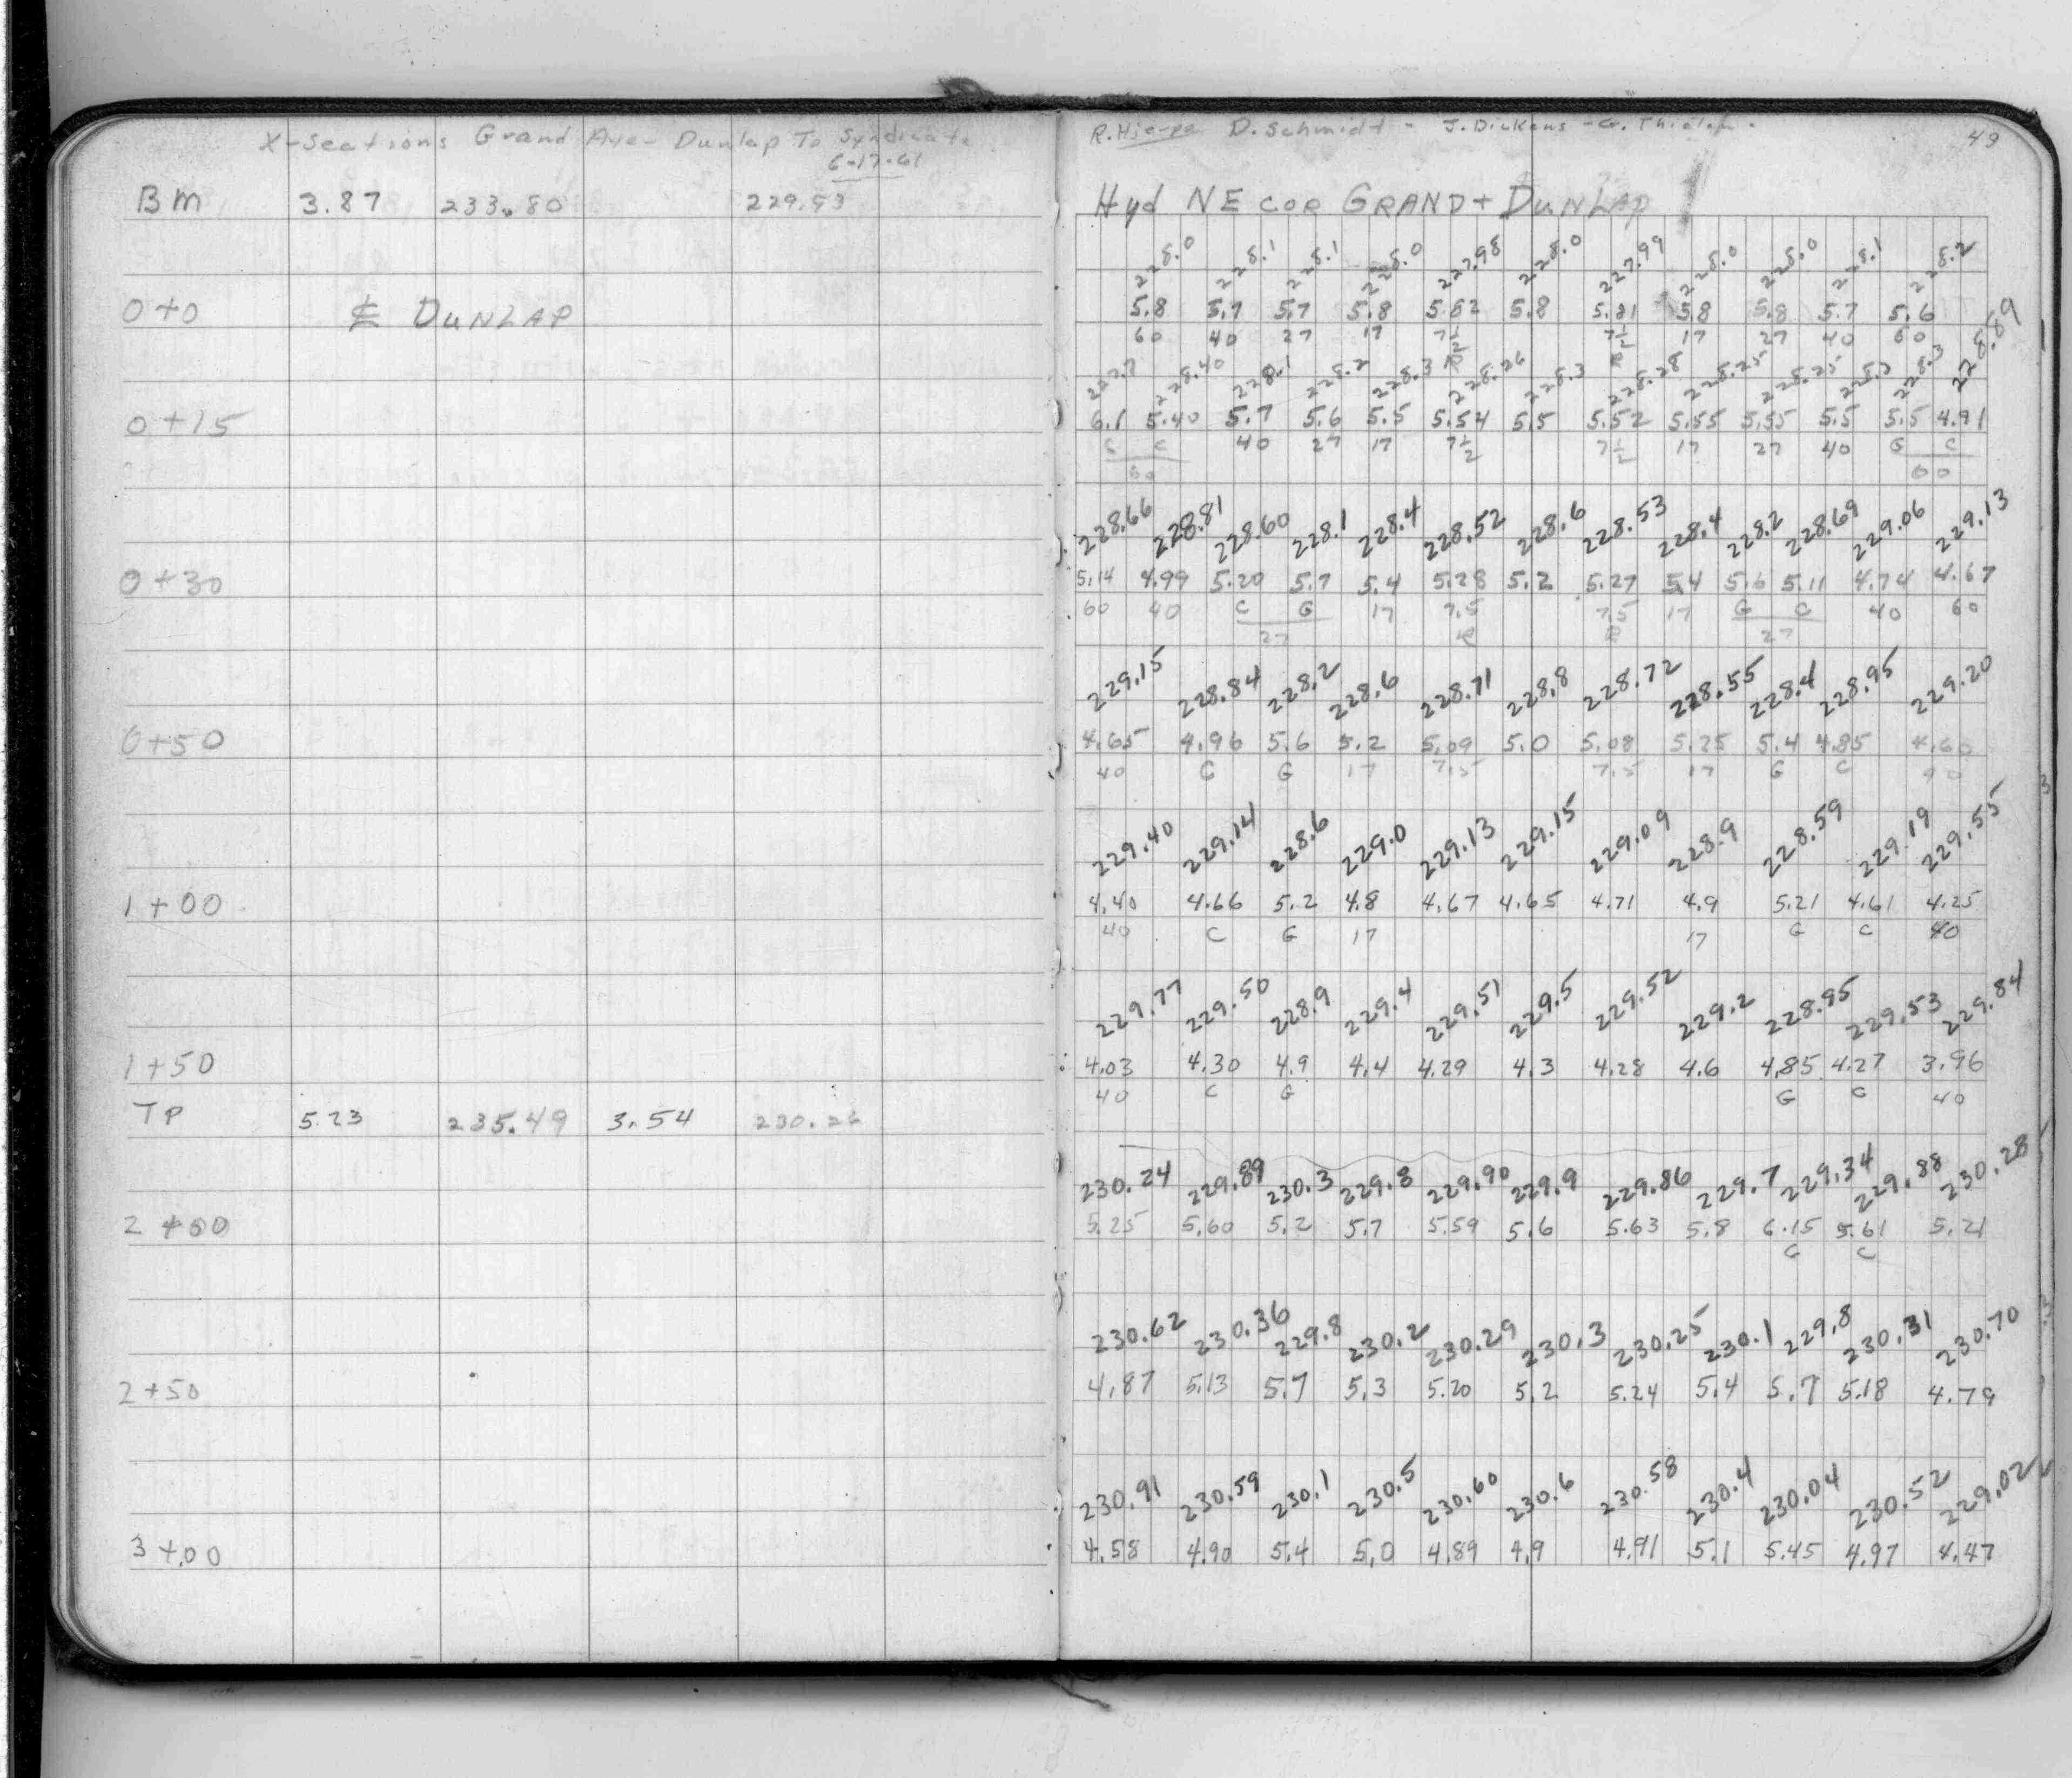 X-Sections Grand Ave- Dunlap To Syndicate
6-17-61
BM 3.87 233.80 229.93
0+0 ℄ DUNLAP
0+15
0+30
0+50
1+00
1+50
TP 5.23 235.49 3.54 230.26
2+00
2+50
3+00
D. Schmidt - J. Dickens - G. Thielen - 49
Hyd NE COR GRAND + DUNLAP
228.0 228.1 228.1 228.0 227.98 228.0 227.99 228.0 228.0 228.1 228.2
5.8 5.7 5.7 5.8 5.82 5.8 5.81 5.8 5.8 5.7 5.6
60 40 27 17 7½ 7½ 17 27 40 60
R R
227.7 228.40 228.1 228.2 228.3 228.26 228.3 228.28 228.25 228.25 228.3 228.3 228.89
6.1 5.40 5.7 5.6 5.5 5.54 5.5 5.52 5.55 5.55 5.5 5.5 4.91
G C 40 27 17 7½ 7½ 17 27 40 G C
60 60
228.66 228.81 228.60 228.1 228.4 228.52 228.6 228.53 228.4 228.2 228.69 229.06 229.13
5.14 4.99 5.20 5.7 5.4 5.28 5.2 5.27 5.4 5.6 5.11 4.74 4.67
60 40 C G 17 7.5 7.5 17 G C 40 60
27 R R 27
229.15 228.84 228.2 228.6 228.71 228.8 228.72 228.55 228.4 228.95 229.20
4.65 4.96 5.6 5.2 5.09 5.0 5.08 5.25 5.4 4.85 4.60
40 C G 17 7.5 7.5 17 G C 40
229.40 229.14 228.6 229.0 229.13 229.15 229.09 228.9 228.59 229.19 229.55
4.40 4.66 5.2 4.8 4.67 4.65 4.71 4.9 5.21 4.61 4.25
40 C G 17 17 G C 40
229.77 229.50 228.9 229.4 229.51 229.5 229.52 229.2 228.95 229.53 229.84
4.03 4.30 4.9 4.4 4.29 4.3 4.28 4.6 4.85 4.27 3.96
40 C G G C 40
230.24 229.89 230.3 229.8 229.90 229.9 229.86 229.7 229.34 229.88 230.28
5.25 5.60 5.2 5.7 5.59 5.6 5.63 5.8 6.15 5.61 5.21
G C
230.62 230.36 229.8 230.2 230.29 230.3 230.25 230.1 229.8 230.31 230.70
4.87 5.13 5.7 5.3 5.20 5.2 5.24 5.4 5.7 5.18 4.79
230.91 230.59 230.1 230.5 230.60 230.6 230.58 230.4 230.04 230.52 229.02
4.58 4.90 5.4 5.0 4.89 4.9 4.91 5.1 5.45 4.97 4.47